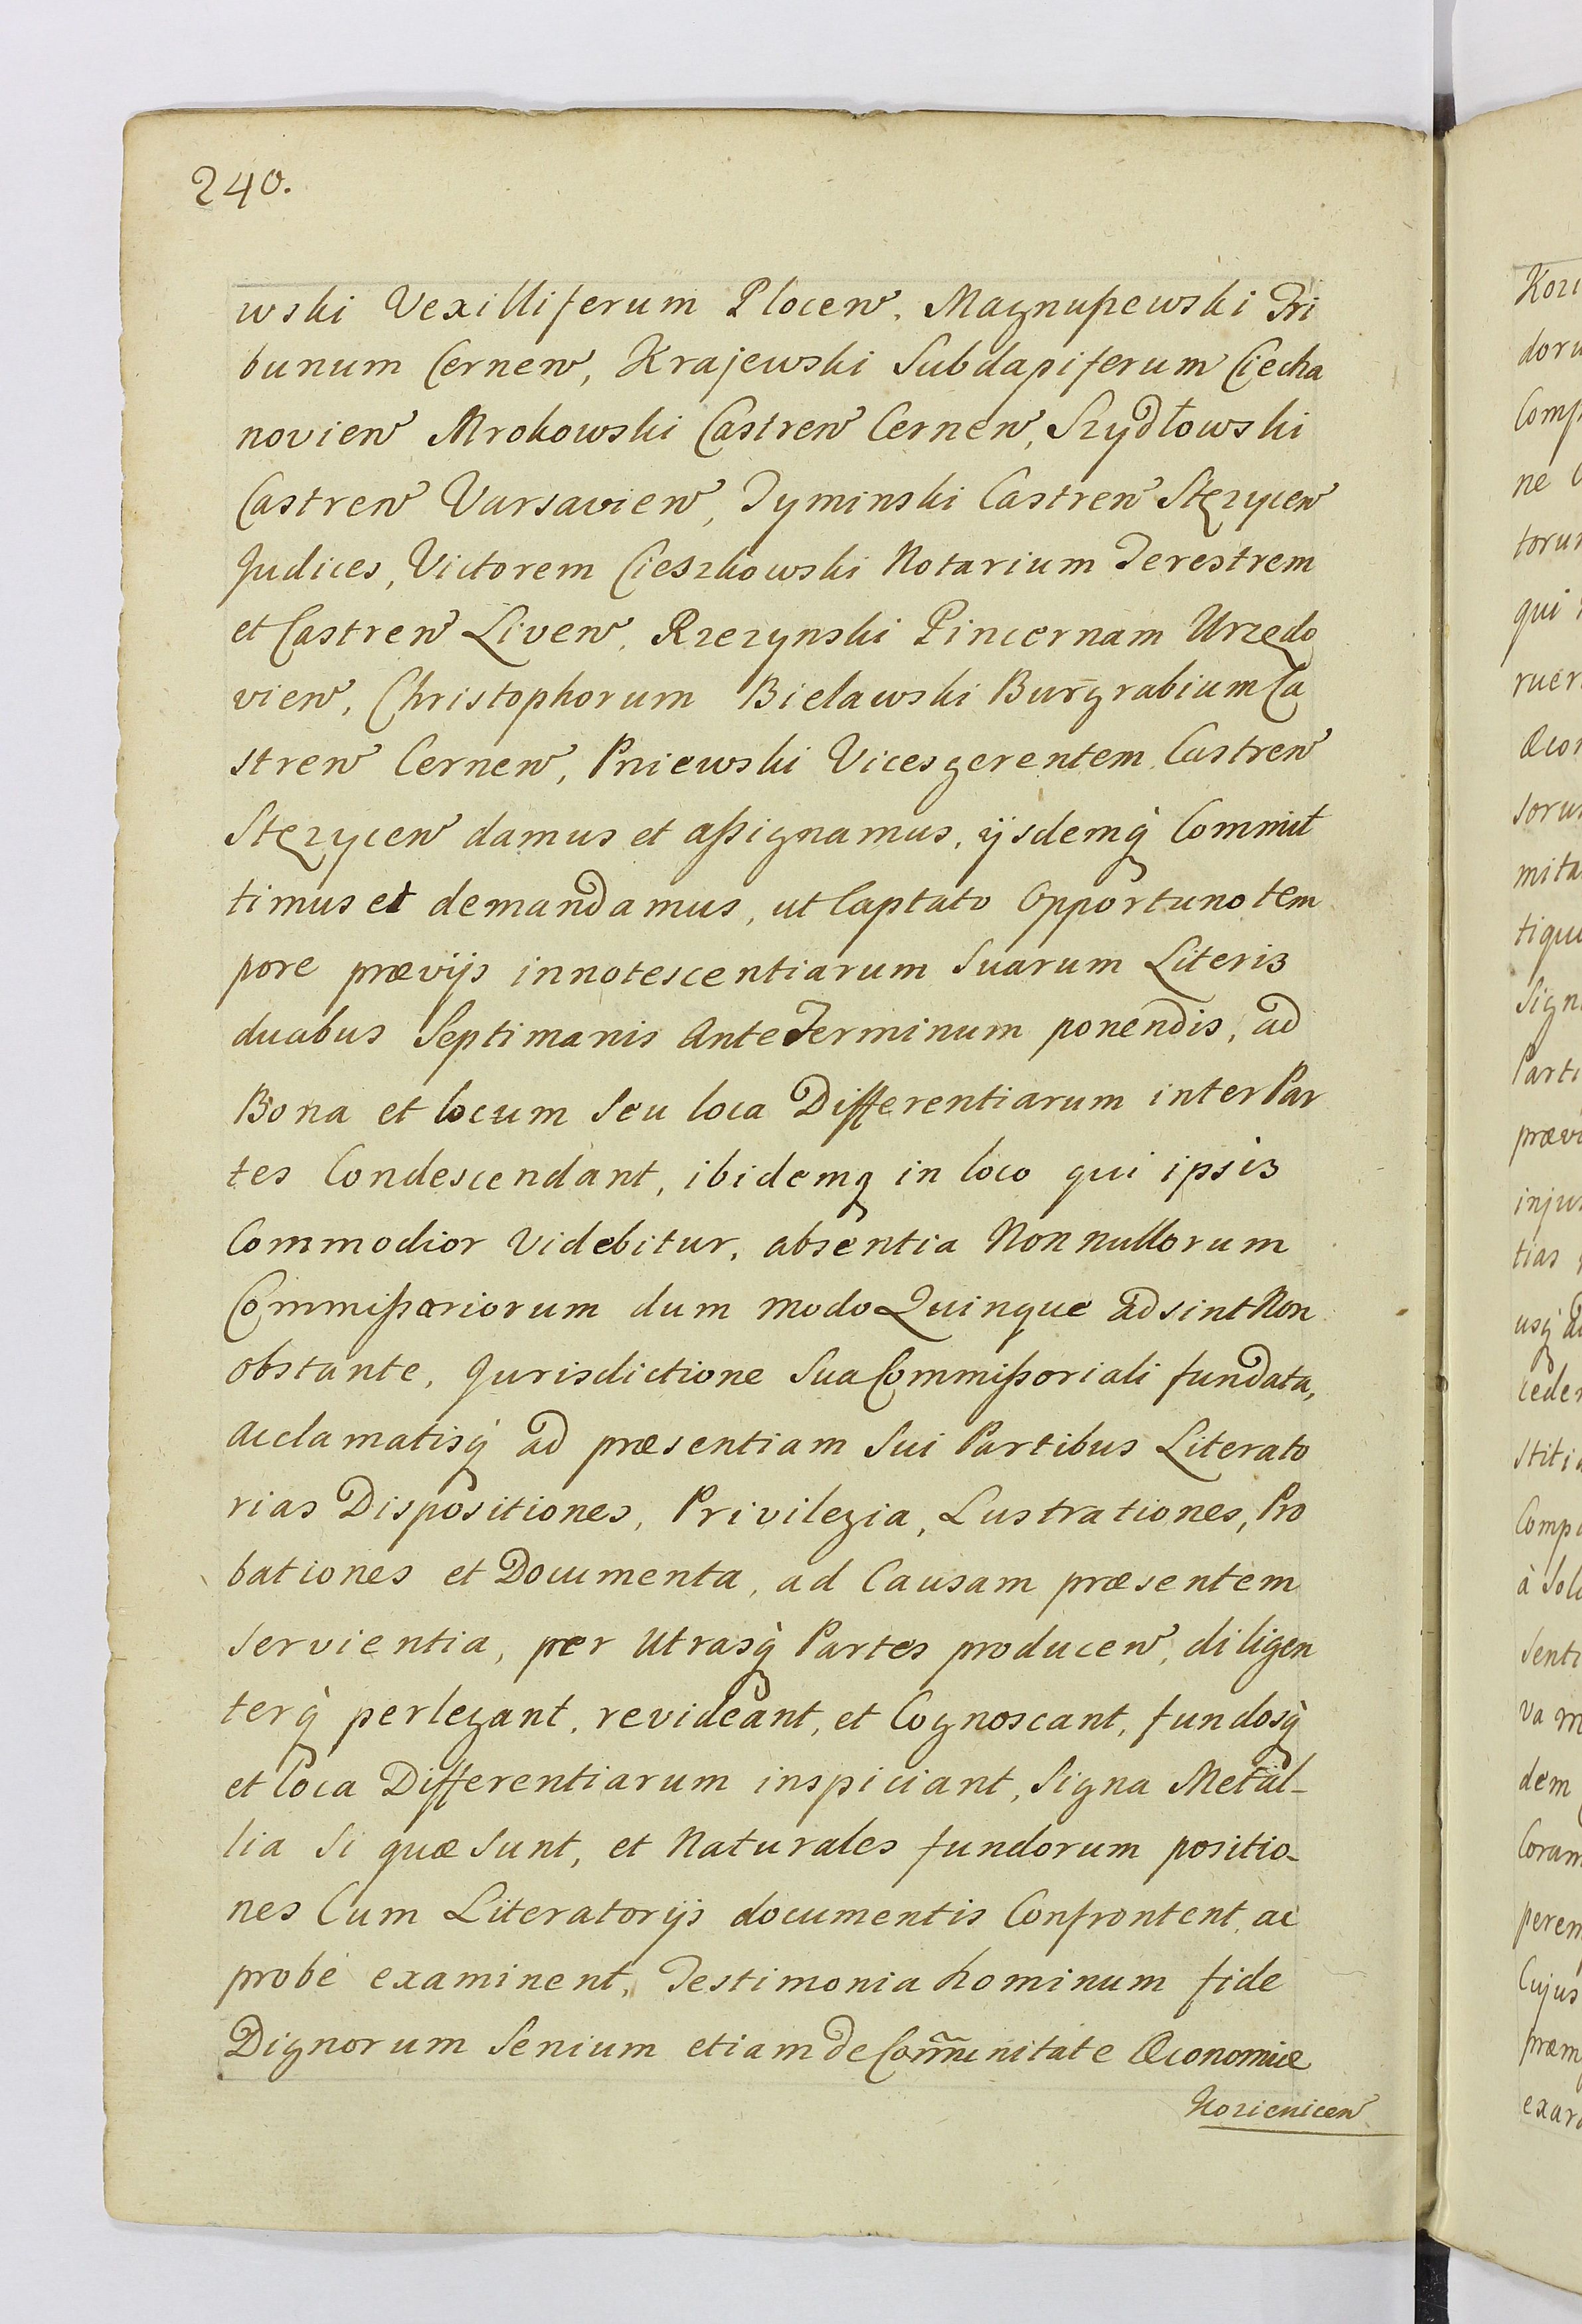 240.
wski Vexilliferum Plocen, Magnuszewski Tri
bunum Cernen, Krajewski Subdapiferum Ciecha
novien Mrokowski Castren Cernen, Szydłowski
Castren Varsavien, Tyminski Castren Stęzycen
Judices, Victorem Cieszkowski Notarium Terestrem
et Castren Liven, Rzezynski Pincernam Urzędo
vien, Christophorum Bielawski Burgrabium Ca
stren Cernen, Pniewski Vicesgerentem Castren
Stęzycen damus et assignamus, ijsdemq₃ Commit
timus et demandamus, ut Captato Opportuno tem
pore prævijs innotescentiarum Suarum Literis
duabus Septimanis Ante Terminum ponendis, ad
Bona et locum seu loca Differentiarum inter Par
tes Condescendant, ibidemq₃ in loco qui ipsis
Commodior Videbitur, absentia Non nullorum
Commissariorum dum modo Quinque adsint Non
obstante, Jurisdictione Sua Commissoriali fundata,
acclamatisq₃ ad præsentiam Sui Partibus Literato
rias Dispositiones, Privilegia, Lustrationes, Pro
bationes et Documenta, ad Causam præsentem
servientia, per Utrasq₃ Partes producen, diligen
terq₃ perlegant, revideant, et Cognoscant, fundosq₃
et Loca Differentiarum inspiciant, Signa Metal-
lia si quæ sunt, et Naturales fundorum positio-
nes Cum Literatorijs documentis Confrontent, ac
probè examinent, Testimonia hominum fide
Dignorum Senium etiam de Com̃unitate Œconomiæ
Kozienicen
Kozi
doru
Comp
ne
toru
qui
ruer
œco
soru
mita
tiqu
Sign
Parti
prævi
inju
tias
usq₃ a
ceder
stiti
Comp
à Sol
Senti
va m
dem
Coram
perem
Cujus
præm
exar